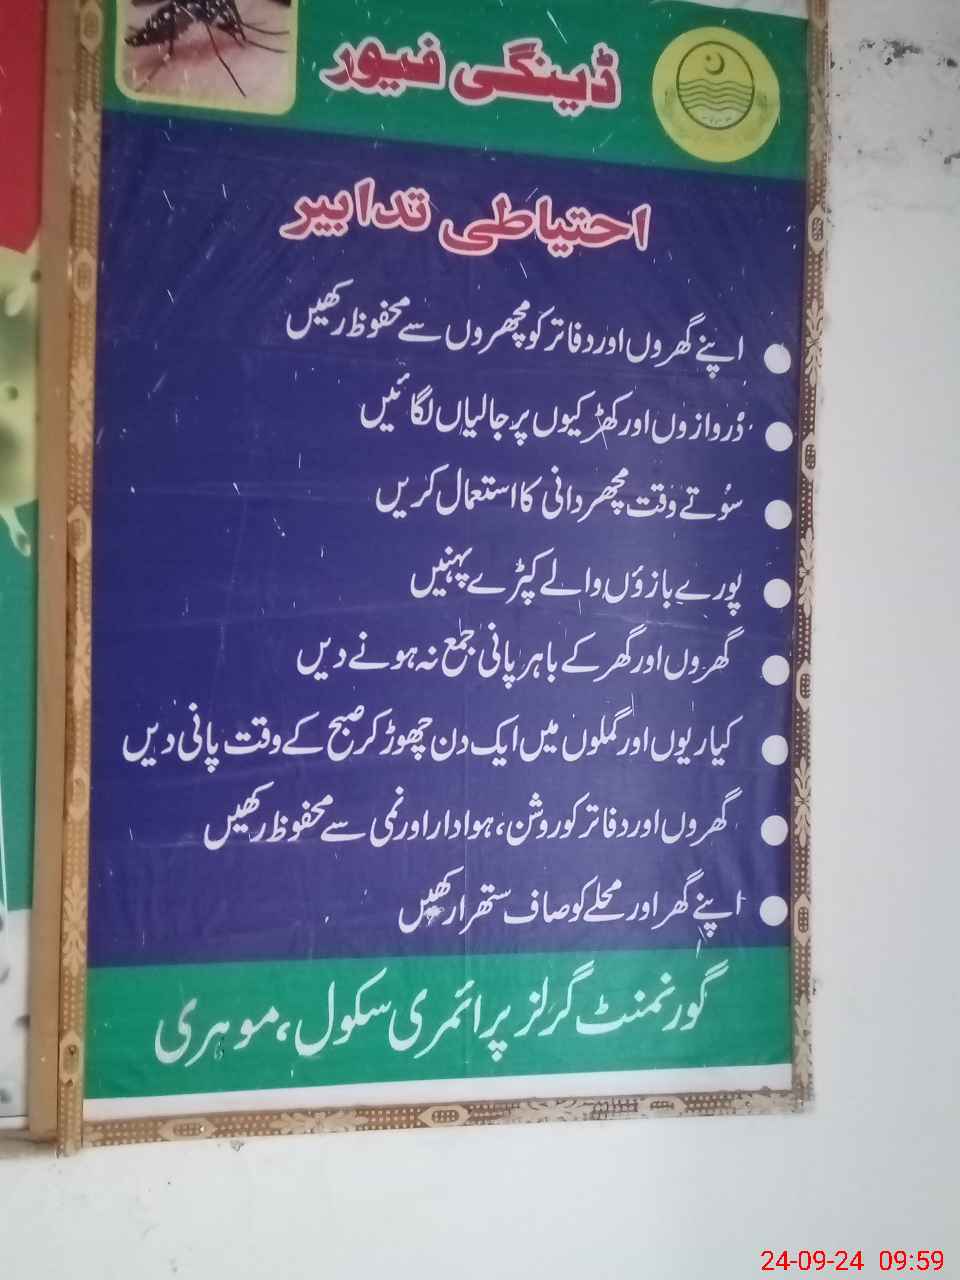 ڈینگی فیور
احتیاطی تدابیر
اپنے گھروں اور دفاتر کو مچھروں سے محفوظ رکھیں
دروازوں اور کھڑکیوں پر جالیاں لگائیں
سوتے وقت مچھر دانی کا استعمال کریں
پورے بازوٴں والے کپڑے پہنیں
گھروں اور گھر کے باہر پانی جمع نہ ہونے دیں
کیاریوں اور گملوں میں ایک دن چھوڑ کر صبح کے وقت پانی دیں
گھروں اور دفاتر کو روشن، ہوادار اور نمی سے محفوظ رکھیں
اپنے گھر اور محلے کو صاف ستھرا رکھیں
گورنمنٹ گرلز پرائمری سکول، موہری
24-09-24 09:59